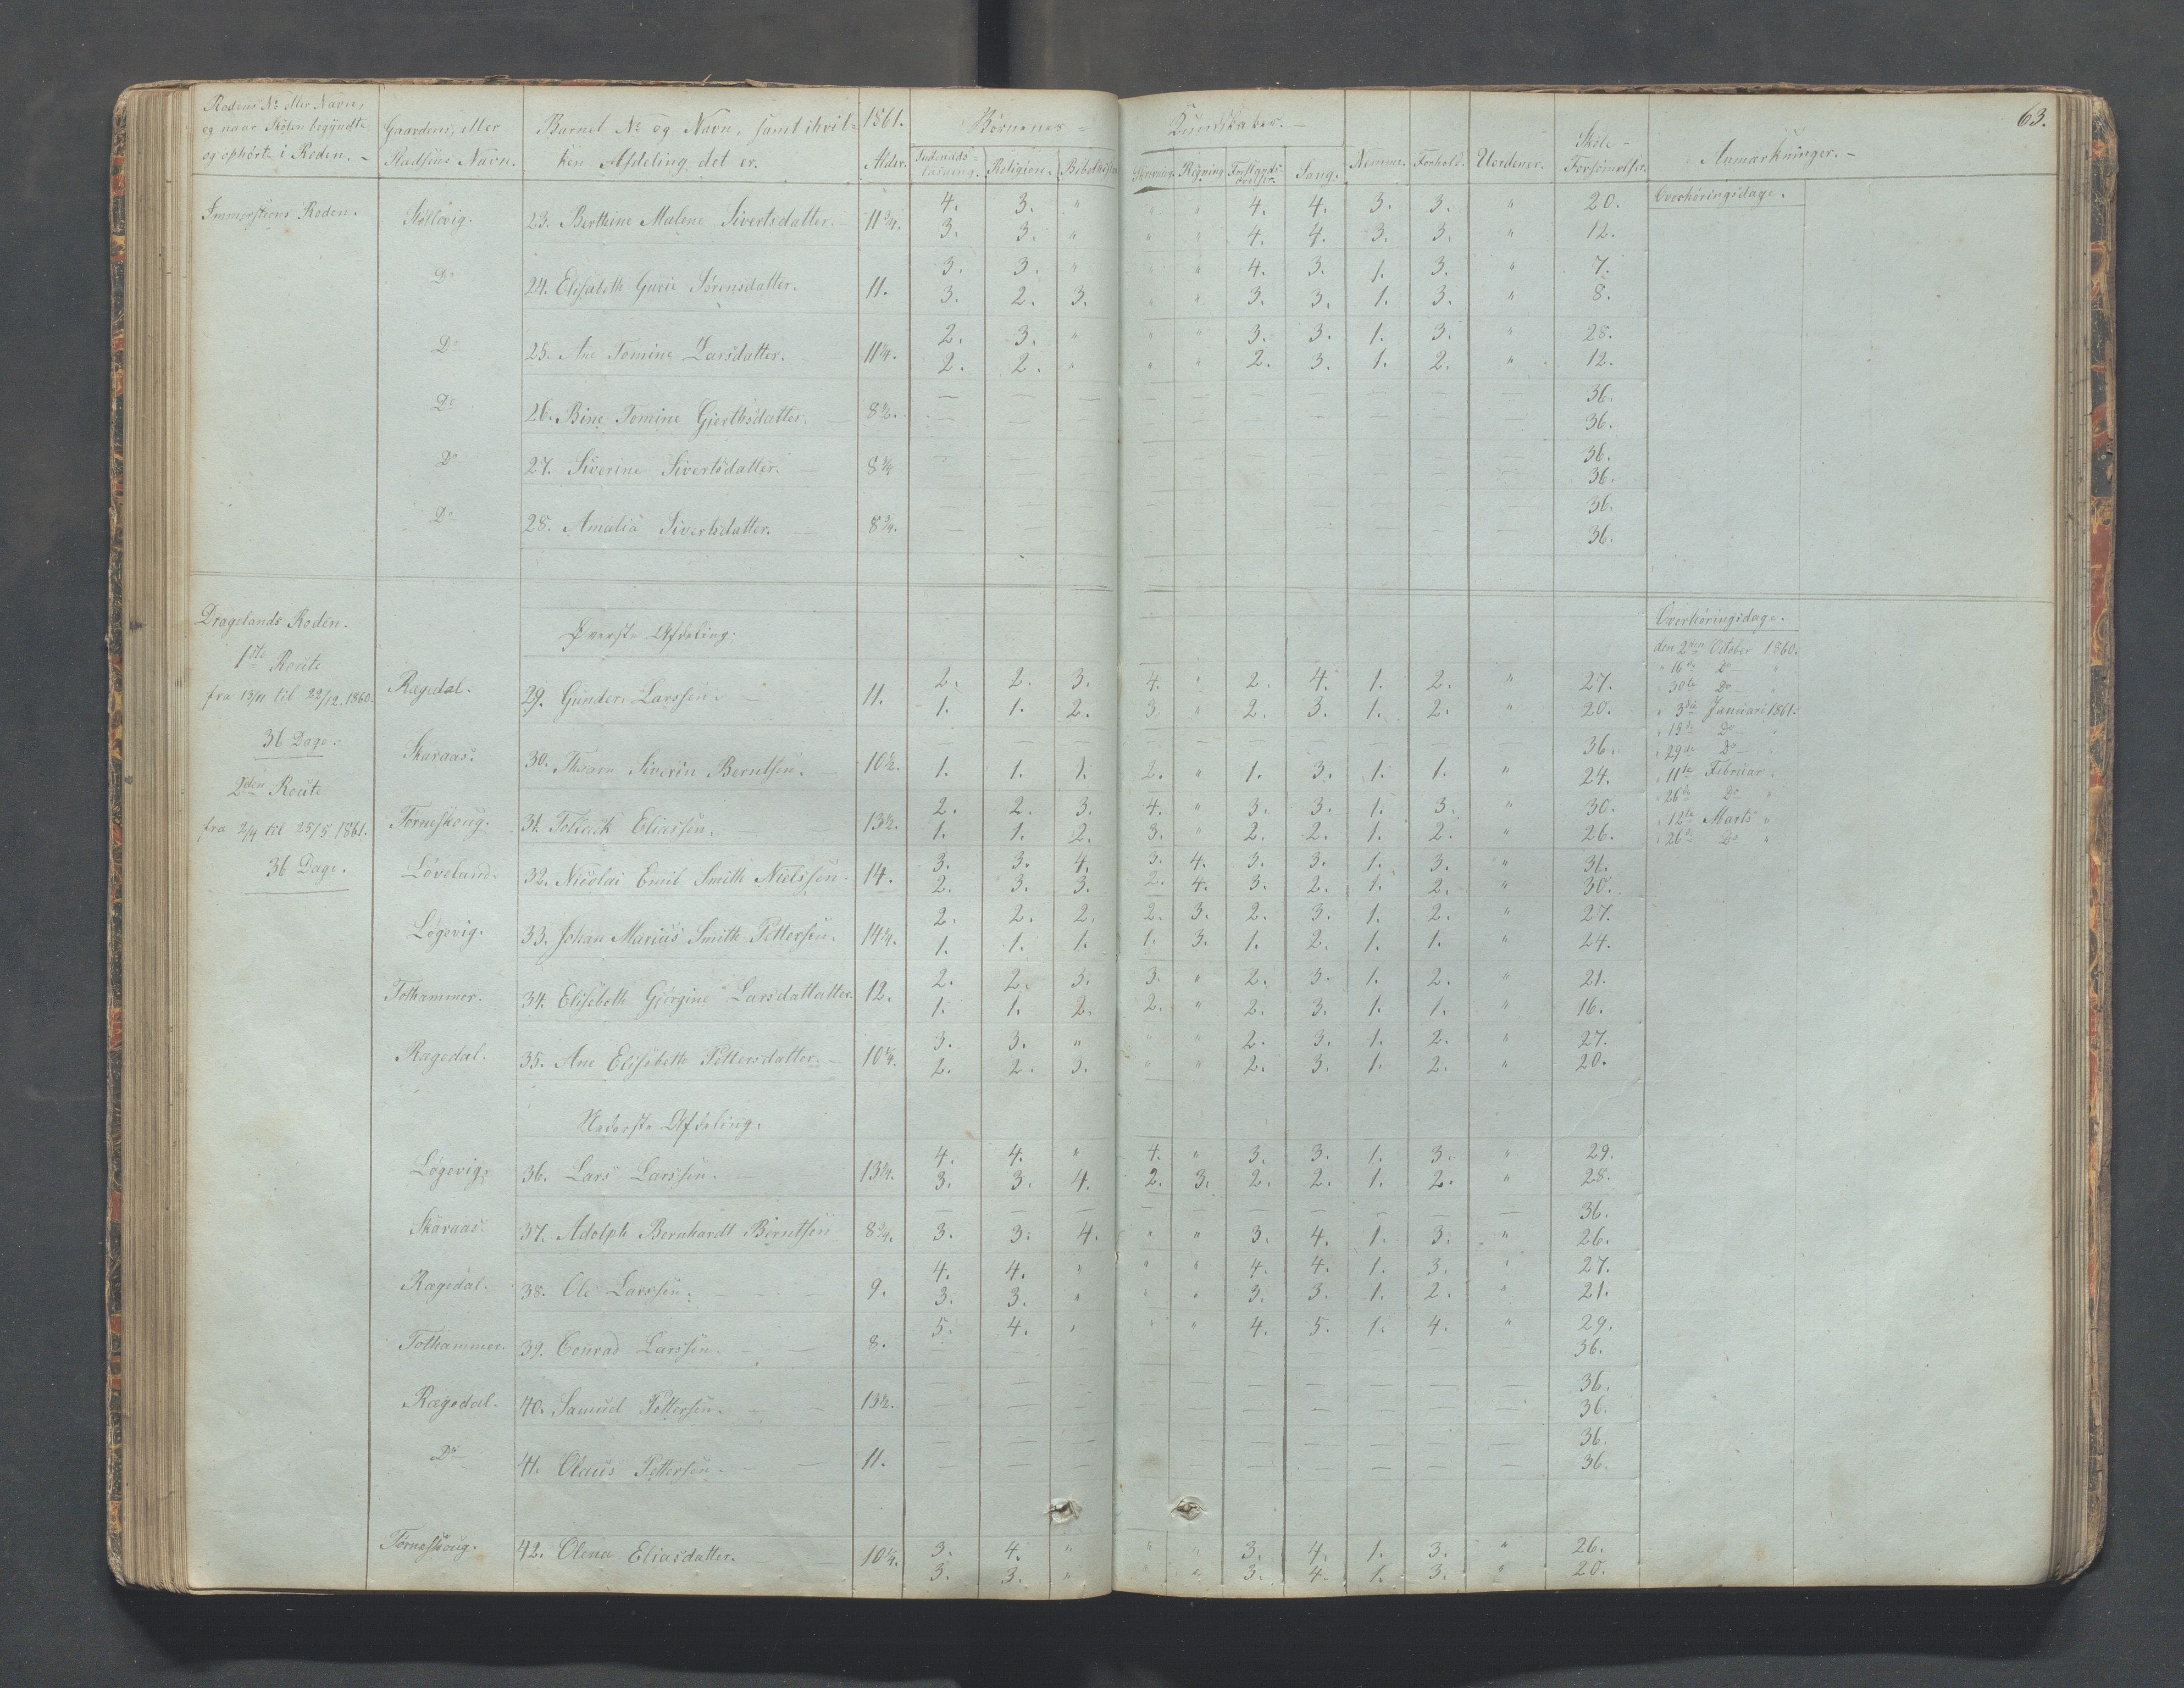 63.
Rodens No eller Navn, og naar Skolen begyndte og ophørte i Roden. - | Gaardens, eller Pladsens Navn. | Barnets No og Navn, samt ihvilken Afdeling det er. | 1861. Alder. | Børnenes - Kundskaber. - | Religion. | Skrivning | Regning | Sang. | Nemme. | Forhold. | Uordener. | Skole-Forsømmelser. | Anmærkninger. -
Immerstens Roden. | 23. Berthine Malene Sivertsdatter. | 11 3/4. | 4. 3. " " " 4. 4. 3. 3. " 20. | Overhøringsdage.
3. 3. " " " 4. 4. 3. 3. " 12.
3. 3. " " " 4. 3. 1. 3. " 7.
Do | 24. Elisabeth Sørensdatter. | 11. | 3. 2. 3. " " 3. 3. 1. 3. " 8.
2. 3. " " " 3. 3. 1. 3. " 28.
Do | 25. Ane Tomine Larsdatter. | 11 3/4. | 2. 2. " " " 2. 3. 1. 2. " 12.
— — — — — — — — — — 36.
Do | 26. Bine Tomine Gjerthsdatter. | 8 1/2. | — — — — — — — — — — 36.
— — — — — — — — — — 36.
Do | 27. Siverine Sivertsdatter. | 8 3/4 | — — — — — — — — — — 36.
— — — — — — — — — — 36.
Do | 28. Amalia Sivertsdatter. | 8 3/4. | — — — — — — — — — — 36.
Dragelands Roden. | Øverste Afdeling. | Overhøringsdage.
1ste Route | den 2den October 1860.
fra 13/11 til 22/12. 1860. | " 16de Do "
36 Dage. | " 30te Do "
2den Route | " 3die Januari 1861.
fra 2/4 til 25/5 1861. | " 15de Do "
36 Dage. | " 29de Do "
" 11te Februar "
" 26de Do "
" 12te Marts "
" 26de Do "
2. 2. 3. 4. " 2. 4. 1. 2. " 27.
Rægedal. | 29. Gunder Larssen. | 11. | 1. 1. 2. 3. " 2. 3. 1. 2. " 20.
— — — — — — — — — — 36.
Skaraas. | 30. Siverin Berntsen. | 10 1/2. | 1. 1. 1. 2. " 1. 3. 1. 1. " 24.
2. 2. 3. 4. " 3. 3. 1. 3. " 30.
Torneskoug. | 31. Eliassen. | 13 1/2. | 1. 1. 2. 3. " 2. 2. 1. 2. " 26.
3. 3. 4. 3. 4. 3. 3. 1. 3. " 31.
Løveland. | 32. Nicolai Emil Smith Nielssen. | 14. | 2. 3. 3. 2. 4. 3. 2. 1. 2. " 30.
2. 2. 2. 2. 3. 2. 3. 1. 2. " 27.
Løgevig. | 33. Johan Marius Smith Pettersen. | 14 3/4. | 1. 1. 1. 1. 3. 1. 2. 1. 1. " 24.
2. 2. 3. 3. " 2. 3. 1. 2. " 21.
Tothammer. | 34. Elisebeth Gjørgine Larsdattatter. | 12. | 1. 1. 2. 2. " 2. 3. 1. 1. " 16.
3. 3. " " " 2. 3. 1. 2. " 27.
Rægedal. | 35. Ane Elisebeth Pettersdatter. | 10 1/4. | 2. 2. 3. " " 2. 3. 1. 2. " 20.
Nederste Afdeling.
4. 4. " 4. " 3. 3. 1. 3. " 29.
Løgevig. | 36. Lars Larssen. | 13 1/4. | 3. 3. 4. 2. 3. 2. 2. 1. 2. " 28.
— — — — — — — — — — 36.
Skaraas. | 37. Adolph Bernhardt Berntsen | 8 3/4. | 3. 3. 4. " " 3. 4. 1. 3. " 26.
4. 4. " " " 4. 4. 1. 3. " 27.
Rægedal. | 38. Ole Larssen. | 9. | 3. 3. " " " 3. 3. 1. 2. " 21.
5. 4. " " " 4. 5. 1. 4. " 29.
Tothammer. | 39. Conrad Larssen. | 8. | — — — — — — — — — — 36.
— — — — — — — — — — 36.
Rægedal. | 40. Samuel Pettersen. | 13 1/2. | — — — — — — — — — — 36.
— — — — — — — — — — 36.
Do | 41. Olaus Pettersen. | 11. | — — — — — — — — — — 36.
3. 4. " " " 3. 4. 1. 3. " 26.
Torneskoug. | 42. Olena Eliasdatter. | 10 1/4. | 3. 3. " " " 3. 4. 1. 3. " 20.